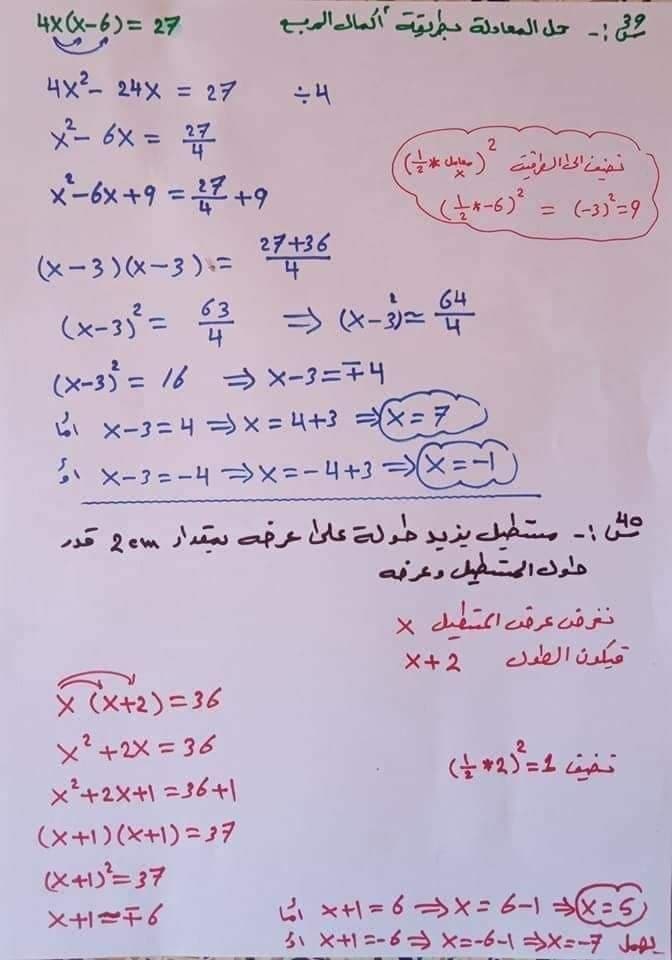 س39:- حل المعادلة بطريقة أكمال المربع 4x(x-6) = 27
4x² - 24x = 27 ÷4
x² - 6x = 27/4
نضيف الى الطرفين (1/2 * معامل x)²
(1/2 * -6)² = (-3)² = 9
x² - 6x + 9 = 27/4 + 9
(x - 3)(x - 3) = 27+36/4
(x-3)² = 63/4 ⇒ (x-3)² ≈ 64/4
(x-3)² = 16 ⇒ x-3 = ∓4
امّا x-3 = 4 ⇒ x = 4+3 ⇒ x = 7
اوْ x-3 = -4 ⇒ x = -4+3 ⇒ x = -1
س40:- مستطيل يزيد طولة على عرضه بمقدار 2cm قدر
طول المستطيل وعرضه
نفرض عرض المستطيل x
فيكون الطول x+2
x (x+2) = 36
x² + 2x = 36
نضيف (1/2 *2)² = 1
x² + 2x + 1 = 36+1
(x+1)(x+1) = 37
(x+1)² = 37
x+1 ≈ ∓6
امّا x+1 = 6 ⇒ x = 6-1 ⇒ x = 5
اوْ x+1 = -6 ⇒ x = -6-1 ⇒ x = -7 يهمل